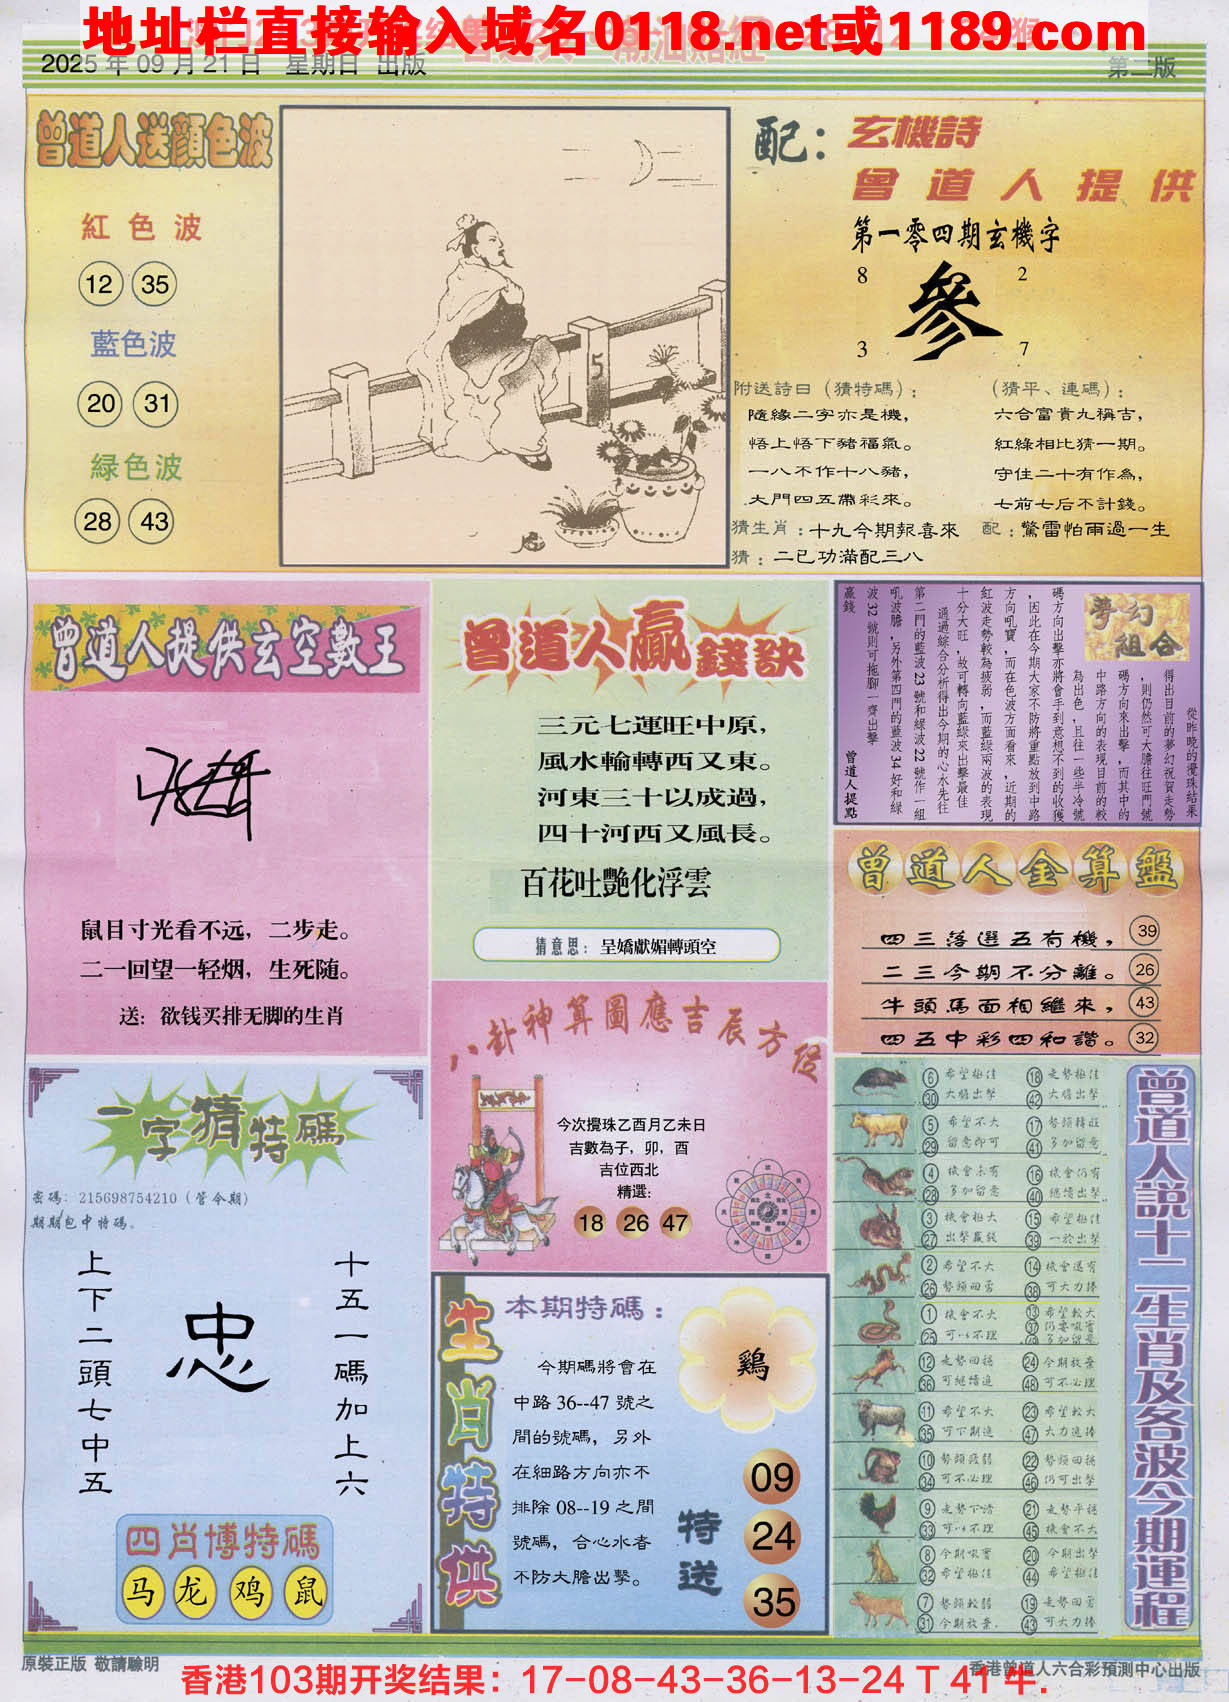 地址栏直接输入域名0118.net或1189.com
2025年09月21日 星期日 出版
第二版
曾道人送顏色波
紅色波
12 35
藍色波
20 31
緑色波
28 43
5
配：
玄機詩
曾道人提供
第一零四期玄機字
8 2
參
3 7
附送詩曰（猜特碼）：
隨緣二字亦是機，
悟上悟下豬福氣。
一八不作十八豬，
大門四五帶彩來。
（猜平、連碼）：
六合富貴九稱吉，
紅綠相比猜一期。
守住二十有作為，
七前七后不計錢。
猜生肖：十九今期報喜來
配：驚雷怕雨過一生
猜：二已功滿配三八
曾道人提供玄空數王
鼠目寸光看不远，二步走。
二一回望一轻烟，生死随。
送：欲钱买排无脚的生肖
曾道人贏錢訣
三元七運旺中原，
風水輪轉西又東。
河東三十以成過，
四十河西又風長。
百花吐艷化浮雲
猜意思：呈嬌獻媚轉頭空
夢幻組合
從昨晚的攪珠結果
得出目前的夢幻祝賀走勢
，則仍然可大膽往旺門號
碼方向來出擊，而其中的
中路方向的表現目前的較
為出色，且往一些半冷號
碼方向出擊亦將會手到意想不到的收獲
，因此在今期大家不防將重點放到中路
方向吼寶，而在色波方面看來，近期的
紅波走勢較為疲弱，而藍綠兩波的表現
十分大旺，故可轉向藍綠來出擊最佳
通過綜合分析得出今期的心水先往
第二門的藍波23號和綠波22號作一組
吼波膽，另外第四門的藍波34好和綠
波32號則可拖腳一齊出擊
贏錢
曾道人提點
曾道人金算盤
四三落選五有機， 39
二三今期不分離。 26
牛頭馬面相繼來， 43
四五中彩四和諧。 32
八卦神算圖應吉辰方位
今次攪珠乙酉月乙未日
吉數為子，卯，酉
吉位西北
精選：
18 26 47
一字猜特碼
密碼：215698754210（管今期）
期期包中特碼。
上下二頭七中五
忠
十五一碼加上六
四肖博特碼
马 龙 鸡 鼠
生肖特供
本期特碼：
今期碼將會在
中路36--47號之
間的號碼，另外
在細路方向亦不
排除08--19之間
號碼，合心水者
不防大膽出擊。
鷄
特送
09
24
35
曾道人說十二生肖及各波今期運程
⑥ ㉚ 希望極佳 大膽出擊 ⑱ ㊷ 走勢極佳 大膽出擊
⑤ ㉙ 希望不大 留意即可 ⑰ ㊶ 勢頭轉旺 多加留意
④ ㉘ 機會未有 多加留意 ⑯ ㊵ 機會仍有 繼續出擊
③ ㉗ 機會極大 出擊贏錢 ⑮ ㊴ 希望極佳 一於出擊
② ㉖ 希望不大 勢頭回勇 ⑭ ㊳ 機會還有 可大力捧
① ㉕ 機會不大 可以不理 ⑬ ㊲ 希望較大 仍要吸寶 多加留意
⑫ ㊱ 走勢回穩 可繼續追 ㉔ ㊽ 今期放棄 可不必理
⑪ ㉟ 希望不大 可下期追 ㉓ ㊼ 希望較大 大力追捧
⑩ ㉞ 勢頭疲弱 可不必理 ㉒ ㊻ 勢頭回穩 仍可出擊
⑨ ㉝ 走勢下滑 可以不理 ㉑ ㊺ 走勢平穩 機會不大
⑧ ㉜ 今期吸寶 希望極佳 ⑳ ㊹ 今期出擊 希望極佳
⑦ ㉛ 勢頭較弱 今期放棄. ⑲ ㊸ 走勢回勇 可大力捧
原裝正版 敬請驗明
香港103期开奖结果：17-08-43-36-13-24 T 41 牛.
香港曾道人六合彩預測中心出版